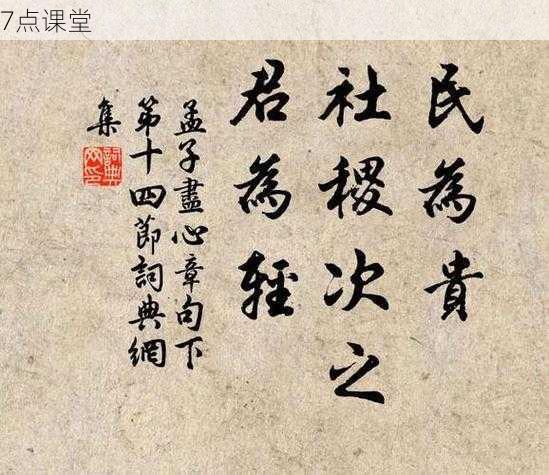 7点课堂
民為貴
社稷次之
君為輕
孟子盡心章句下
第十四節詞典網
集